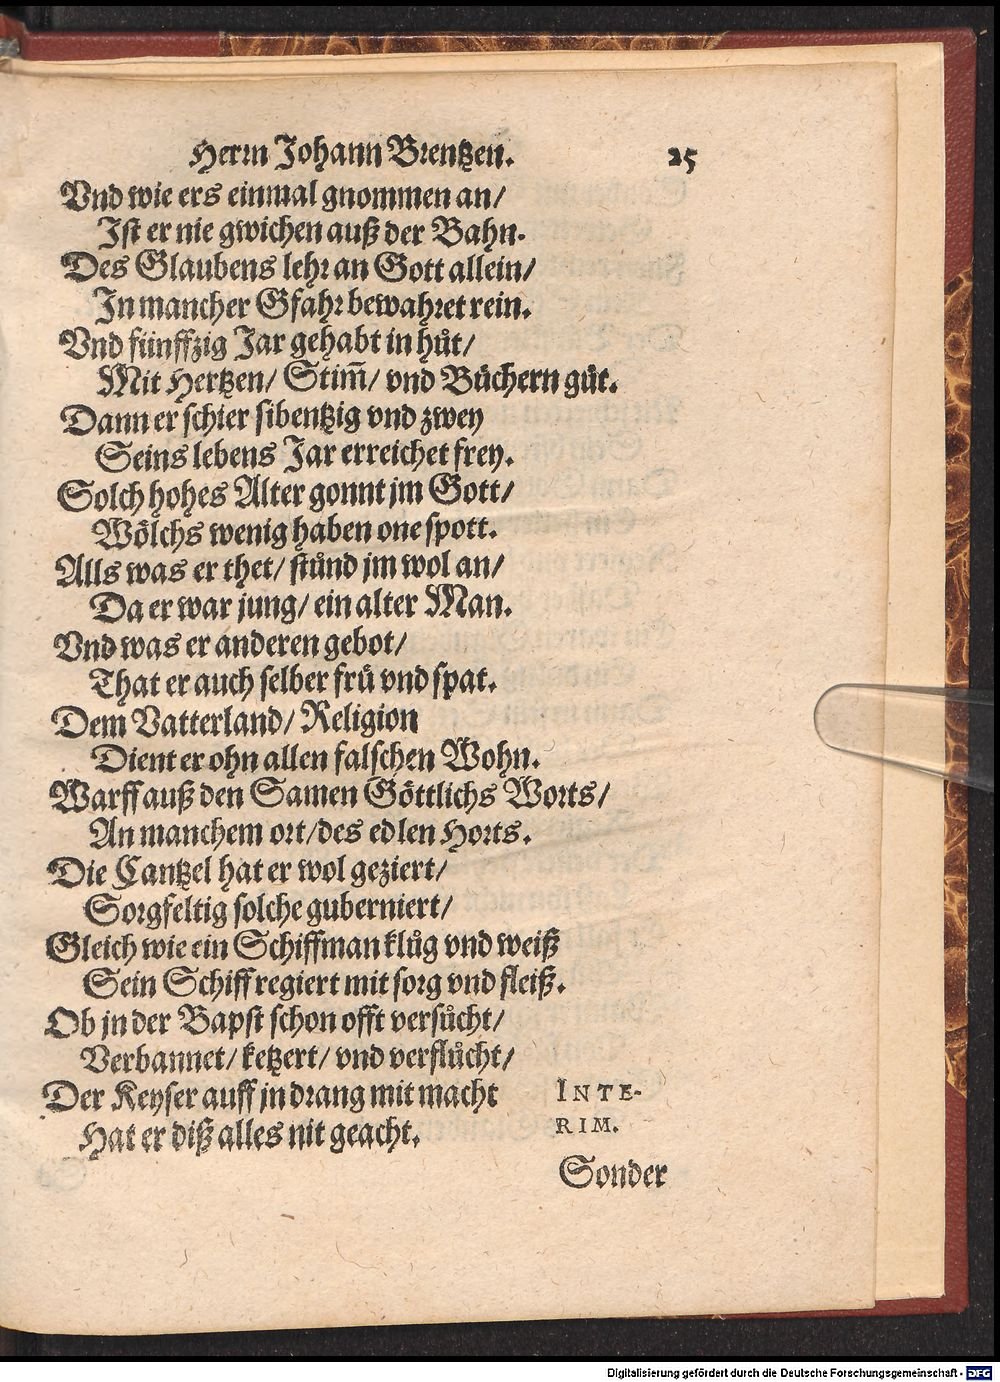 Herrn Johann Brentzen. 25
Vnd wie ers einmal gnommen an/
Ist er nie gwichen auß der Bahn.
Des Glaubens lehr an Gott allein/
In mancher Gfahr bewahret rein.
Vnd fünffzig Jar gehabt in hůt/
Mit Hertzen/ Stim̃/ vnd Büchern gůt.
Dann er schier sibentzig vnd zwey
Seins lebens Jar erreichet frey.
Solch hohes Alter gonnt jm Gott/
Wölchs wenig haben one spott.
Alls was er thet/ stůnd jm wol an/
Da er war jung/ ein alter Man.
Vnd was er anderen gebot/
That er auch selber frů vnd spat.
Dem Vatterland/ Religion
Dient er ohn allen falschen Wohn.
Warff auß den Samen Göttlichs Worts/
An manchem ort/ des edlen Horts.
Die Cantzel hat er wol geziert/
Sorgfeltig solche guberniert/
Gleich wie ein Schiffman klůg vnd weiß
Sein Schiff regiert mit sorg vnd fleiß.
Ob jn der Bapst schon offt versůcht/
Verbannet/ ketzert/ vnd verflůcht/
Der Keyser auff jn drang mit macht INTE-
Hat er diß alles nit geacht. RIM.
Sonder
Digitalisierung gefördert durch die Deutsche Forschungsgemeinschaft - DFG